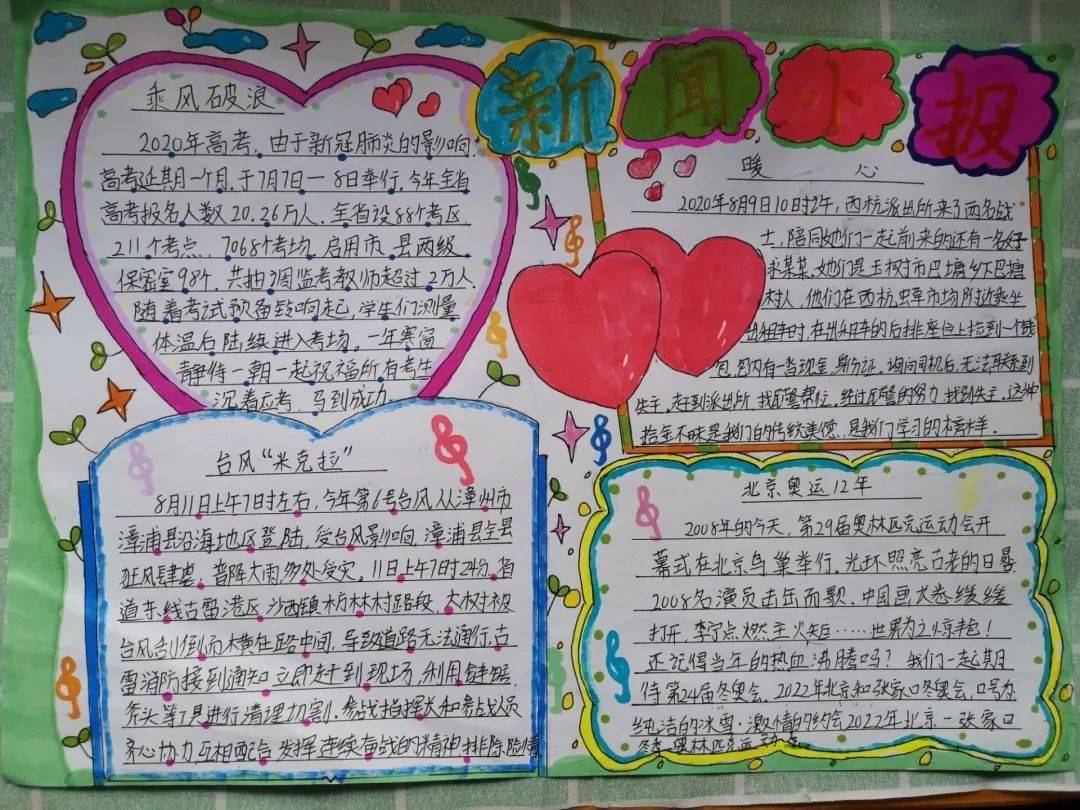 新闻小报
乘风破浪
2020年高考,由于新冠肺炎的影响,
高考延期一个月,于7月7日一8日举行,今年全省
高考报名人数20.26万人,全省设88个考区
211个考点,7068个考场,启用市、县两级
保密室98个,共抽调监考教师超过2万人
随着考试预备铃响起,学生们测量
体温后陆续进入考场。一年寒窗
静待一朝一起祝福所有考生
沉着应考,马到成功
暖心
2020年8月9日10时2午,西杭派出所来了两名战
士,陪同她们一起前来的还有一名好
求某某,她们是玉树市巴塘乡下巴塘
村人,他们在西杭虫草市场附近乘坐
出租车时,在出租车的后排座位上捡到一个钱
包,包内有一当现金,身份证,询问司机后,无法联系到
失主,赶到派出所,找民警帮忙,经过民警的努力,找到失主,这种
拾金不昧是我们的传统美德,是我们学习的榜样。
台风“米克拉”
8月11日上午7日时左右,今年第6号台风,从漳州市
漳浦县沿海地区登陆,受台风影响,漳浦县全县
狂风肆虐,普降大雨,多处受灾。11日上午7时24分,省
道东线古雷港区,沙西镇枋林村路段,大树被
台风刮倒而横在路中间,导致道路无法通行,古
雷消防接到通知立即赶到现场,利用链锯
斧头等工具进行清理切割,参战指挥大和参战人员
齐心协力互相配合,发挥连续奋战的精神排除险情
北京奥运12年
2008年的今天,第29届奥林匹克运动会开
幕式在北京鸟巢举行,光环照亮古老的日晷
2008名演员击缶而歌、中国画大卷缓缓
打开,李宁点燃主火炬……世界为之北京韦!
还记得当年的热血沸腾吗?我们一起期
待第24届冬奥会,2022年北京和张家口冬奥会,口号为
纯洁的冰雪·激情的约会2022年北京一张家口
冬季奥林匹克运动会